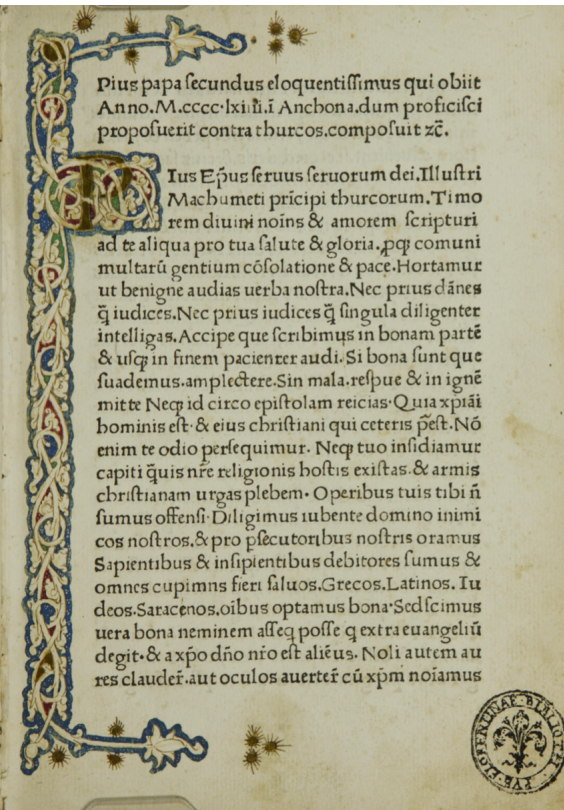 Pius papa ſecundus eloquentiſſimus qui obiit
Anno.M.cccc·lxiiii.ī Anchona.dum proficiſci
propoſuerit contra thurcos.compoſuit ⁊c̄.
PIus Ep̄us ſeruus ſeruorum dei.Illuſtri
Machumeti prīcipi thurcorum.Timo
rem diuini noīns & amorem ſcripturi
ad te aliqua pro tua ſalute & gloria.ꝓqꝫ comuni
multarū gentium cōſolatione & pace.Hortamur
ut benigne audias uerba noſtra.Nec prius dānes
q̄ iudices.Nec prius iudices q̄ ſingula diligenter
intelligas.Accipe que ſcribimus in bonam partē
& uſqꝫ in finem pacienter audi.Si bona ſunt que
ſuademus.amplectere.Sin mala.reſpue & in ignē
mitte Neqꝫ id circo epiſtolam reicias·Quia xpiāi
hominis eſt·& eius chriſtiani qui ceteris p̄eſt.Nō
enim te odio perſequimur. Neqꝫ tuo inſidiamur
capiti q̄uis nr̄e religionis hoſtis exiſtas.& armis
chriſtianam urgas plebem· Operibus tuis tibi n̄
ſumus offenſi·Diligimus iubente domino inimi
cos noſtros.& pro ꝑſecutoribus noſtris oramus
Sapientibus & inſipientibus debitores ſumus &
omnes cupimns fieri ſaluos.Grecos.Latinos. Iu
deos.Saracenos.oībus optamus bona·Sedſcimus
uera bona neminem aſſeq poſſe q extra euangeliū
degit·& a xp̄o dn̄o nr̄o eſt aliēus. Noli autem au
res claudeř.aut oculos auerteř cū xp̄m noīamus
PVB·FLORENTINAE·BIBLIOTH